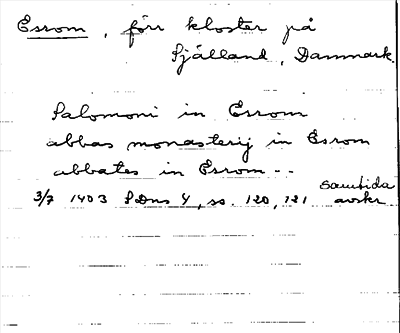 Esrom, förr kloster på
Själland, Danmark.
Salomoni in Esrom
abbas monasterij in Esrom
abbates in Esrom --
3/7 1403 SDns 4, ss. 120, 121 samtida avskr